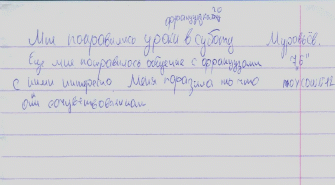 французской
Мне понравились уроки в субботу Муравьёв.
Еще мне понравилось общение с французами 7,6"
с ними интересно. Меня поразила то что
они сочувствовали нам